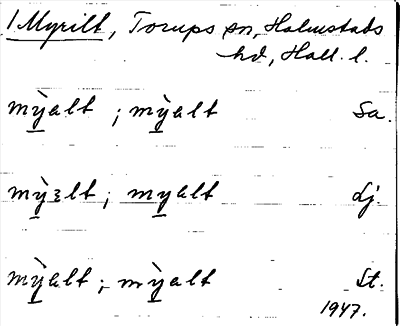 1 Myrilt, Torups sn, Halmstads
hd, Hall. l.
mỳalt ; mỳalt Sa.
mỳɜlt ; myalt Lj.
mỳalt ; mỳalt St.
1947.